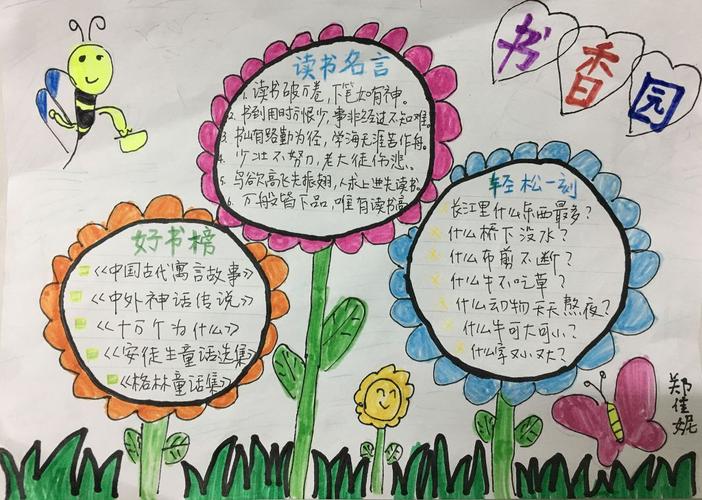 书香园
读书名言
1、读书破万卷，下笔如有神。
2、书到用时方恨少，事非经过不知难。
3、书山有路勤为径，学海无涯苦作舟。
4、少壮不努力，老大徒伤悲。
5、鸟欲高飞先振翅，人求上进先读书。
6、万般皆下品，唯有读书高
好书榜
《中国古代寓言故事》
《中外神话传说》
《十万个为什么》
《安徒生童话选集》
《格林童话集》
轻松一刻
长江里什么东西最多？
什么桥下没水？
什么布剪不断？
什么牛不吃草？
什么动物天天熬夜？
什么牛可大可小？
什么字又小又大？
郑佳妮